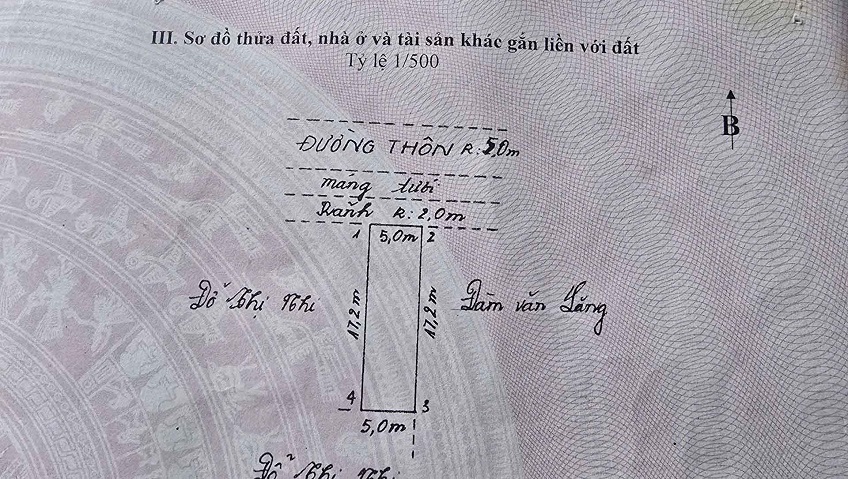 III. Sơ đồ thửa đất, nhà ở và tài sản khác gắn liền với đất
Tỷ lệ 1/500
B
ĐƯỜNG THÔN R: 5,0m
máng tưới
Rãnh R: 2,0m
1 5,0m 2
Đỗ Thị Nhi
17,2m
17,2m
Đam văn Lăng
4
3
5,0m
Đỗ Thị Nhi